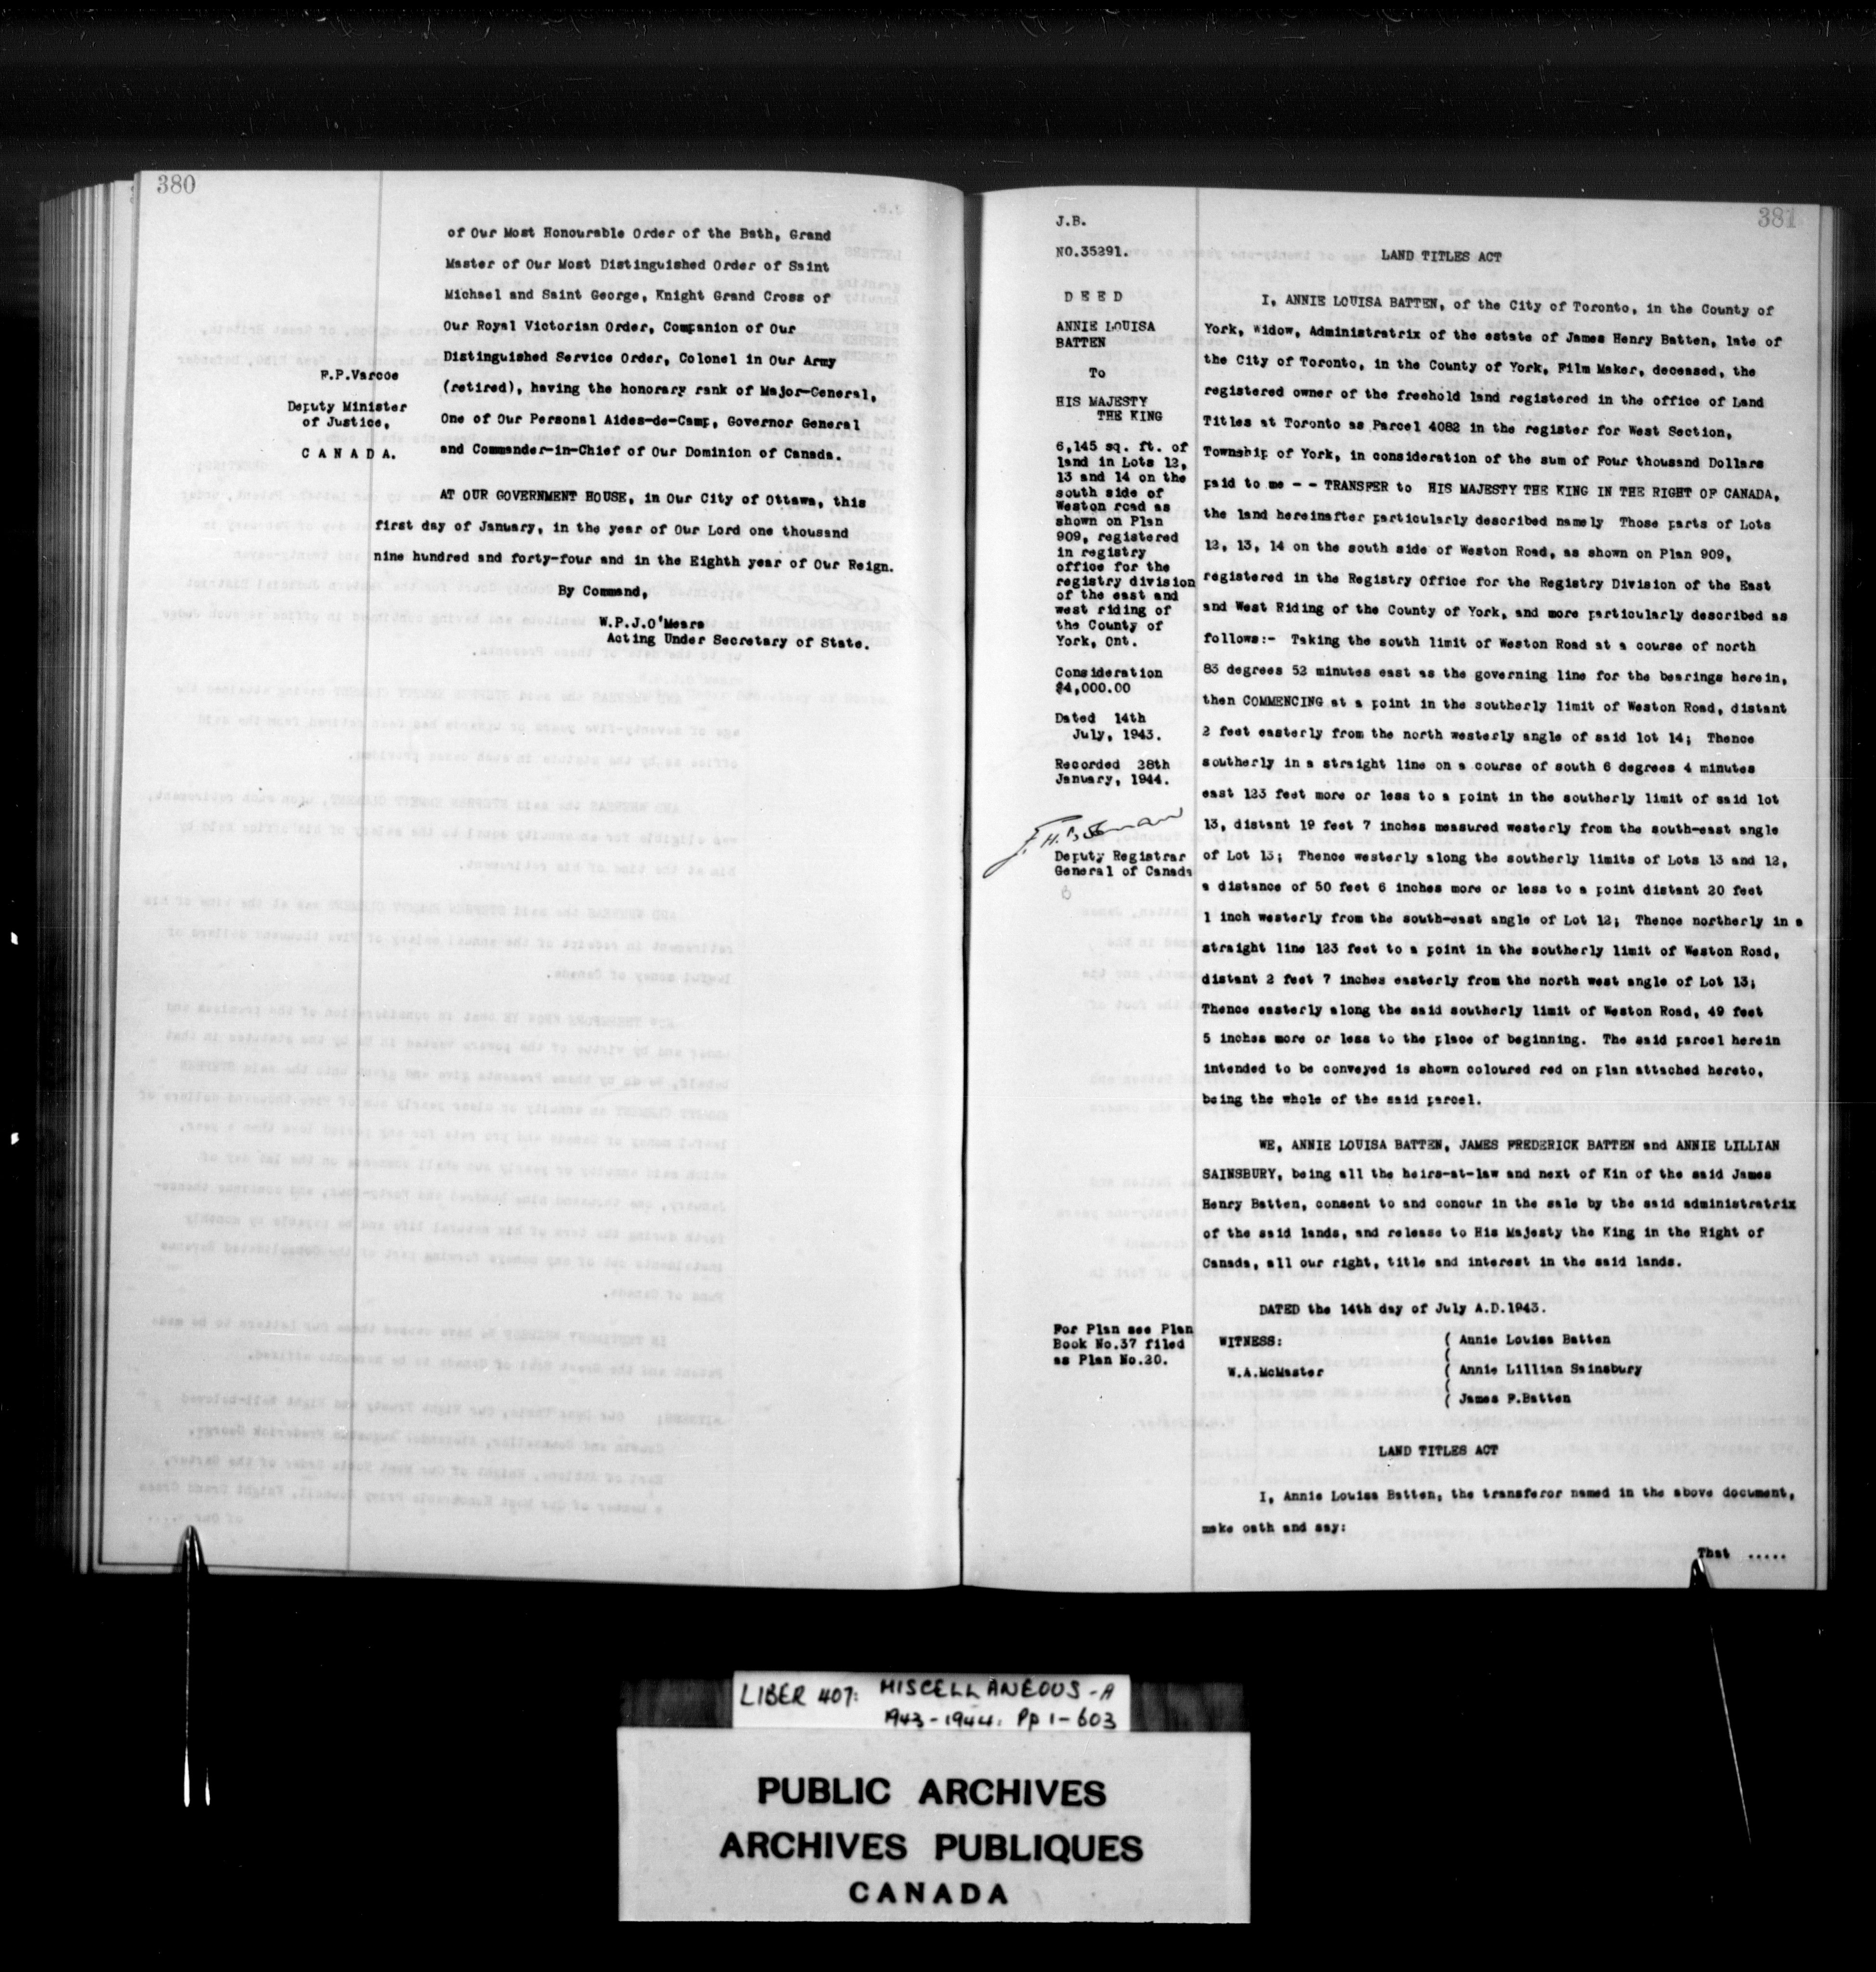 380
of Our Most Honourable Order of the Bath, Grand
Master of Our Most Distinguished Order of Saint
Michael and Saint George, Knight Grand Cross of
Our Royal Victorian Order, Companion of Our
Distinguished Service Order, Colonel in Our Army
(retired), having the honorary rank of Major-General,
One of Our Personal Aides-de-Camp, Governor General
and Commander-in-Chief of Our Dominion of Canada.
F.P.Varcoe
Deputy Minister
of Justice,
C A N A D A.
AT OUR GOVERNMENT HOUSE, in Our City of Ottawa, this
first day of January, in the year of Our Lord one thousand
nine hundred and forty-four and in the Eighth year of Our Reign.
By Command,
W.P.J.O'Meara
Acting Under Secretary of State.
381
J.B.
NO.35291.
D E E D
ANNIE LOUISA
BATTEN
To
HIS MAJESTY
THE KING
6,145 sq. ft. of
land in Lots 12,
13 and 14 on the
south side of
Weston road as
shown on Plan
909, registered
in registry
office for the
registry division
of the east and
west riding of
the County of
York, Ont.
Consideration
$4,000.00
Dated 14th
July, 1943.
Recorded 28th
January, 1944.
Deputy Registrar
General of Canada
For Plan see Plan
Book No.37 filed
as Plan No.20.
LAND TITLES ACT
I, ANNIE LOUISA BATTEN, of the City of Toronto, in the County of
York, Widow, Administratrix of the estate of James Henry Batten, late of
the City of Toronto, in the County of York, Film Maker, deceased, the
registered owner of the freehold land registered in the office of Land
Titles at Toronto as Parcel 4082 in the register for West Section,
Township of York, in consideration of the sum of Four thousand Dollars
paid to me - - TRANSFER to HIS MAJESTY THE KING IN THE RIGHT OF CANADA,
the land hereinafter particularly described namely Those parts of Lots
12, 13, 14 on the south side of Weston Road, as shown on Plan 909,
registered in the Registry Office for the Registry Division of the East
and West Riding of the County of York, and more particularly described as
follows:- Taking the south limit of Weston Road at a course of north
83 degrees 52 minutes east as the governing line for the bearings herein,
then COMMENCING at a point in the southerly limit of Weston Road, distant
2 feet easterly from the north westerly angle of said lot 14; Thence
southerly in a straight line on a course of south 6 degrees 4 minutes
east 123 feet more or less to a point in the southerly limit of said lot
13, distant 19 feet 7 inches measured westerly from the south-east angle
of Lot 13; Thence westerly along the southerly limits of Lots 13 and 12,
a distance of 50 feet 6 inches more or less to a point distant 20 feet
1 inch westerly from the south-east angle of Lot 12; Thence northerly in a
straight line 123 feet to a point in the southerly limit of Weston Road,
distant 2 feet 7 inches easterly from the north west angle of Lot 13;
Thence easterly along the said southerly limit of Weston Road, 49 feet
5 inches more or less to the place of beginning. The said parcel herein
intended to be conveyed is shown coloured red on plan attached hereto,
being the whole of the said parcel.
WE, ANNIE LOUISA BATTEN, JAMES FREDERICK BATTEN and ANNIE LILLIAN
SAINSBURY, being all the heirs-at-law and next of Kin of the said James
Henry Batten, consent to and concur in the sale by the said administratrix
of the said lands, and release to His Majesty the King in the Right of
Canada, all our right, title and interest in the said lands.
DATED the 14th day of July A.D.1943.
WITNESS: ( Annie Louisa Batten
(
W.A.McMaster ( Annie Lillian Sainsbury
(
( James F.Batten
LAND TITLES ACT
I, Annie Louisa Batten, the transferor named in the above document,
make oath and say:
That .....
LIBER 407: MISCELLANEOUS - A
1943-1944. Pp 1-603
PUBLIC ARCHIVES
ARCHIVES PUBLIQUES
CANADA